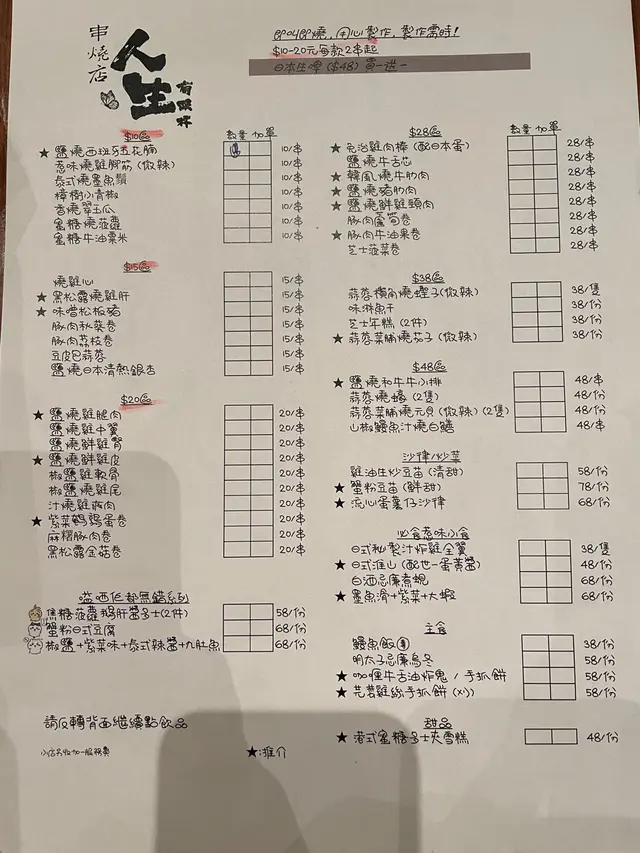 串燒店
人生
有限杯
即叫即燒，用心製作，製作需時！
$10-20元每款2串起
日本生啤 ($48) 買一送一
$10區
數量 加單
★ 鹽燒西班牙五花腩 10/串
惹味燒雞腳筋 (微辣) 10/串
泰式燒墨魚鬚 10/串
樟樹小青椒 10/串
香燒翠玉瓜 10/串
蜜糖燒菠蘿 10/串
蜜糖牛油粟米 10/串
$15區
燒雞心 15/串
★ 黑松露燒雞肝 15/串
★ 味噌松板豬 15/串
豚肉秋葵卷 15/串
豚肉荔枝卷 15/串
豆皮巴蒜蓉 15/串
鹽燒日本清熱銀杏 15/串
$20區
★ 鹽燒雞腿肉 20/串
鹽燒雞中翼 20/串
鹽燒鮮雞腎 20/串
★ 鹽燒鮮雞皮 20/串
椒鹽雞軟骨 20/串
椒鹽燒雞尾 20/串
汁燒雞頸肉 20/串
★ 紫菜鵪鶉蛋卷 20/串
麻糬豚肉卷 20/串
黑松露金菇卷 20/串
嗌西佢都無錯系列
焦糖菠蘿鵝肝醬多士(2件) 58/份
蟹粉日式豆腐 68/份
椒鹽+紫菜味+泰式辣醬+九肚魚 68/份
請反轉背面繼續點飲品
小店另收加一服務費
★:推介
$28區
數量 加單
★ 免治雞肉棒 (配日本蛋) 28/串
鹽燒牛舌芯 28/串
★ 韓風燒牛肋肉 28/串
★ 鹽燒豬肋肉 28/串
★ 鹽燒鮮雞頸肉 28/串
豚肉蘆筍卷 28/串
★ 豚肉牛油果卷 28/串
芝士菠菜卷 28/串
$38區
蒜蓉欖角燒蟶子(微辣) 38/隻
味淋魚干 38/份
芝士年糕 (2件) 38/份
★ 蒜蓉菜脯燒茄子 (微辣) 38/份
$48區
★ 鹽燒和牛牛小排 48/串
蒜蓉燒蠔 (2隻) 48/份
蒜蓉菜脯燒元貝 (微辣) (2隻) 48/份
山椒鰻魚汁燒白鱔 48/串
沙律/炒菜
雞油生炒豆苗 (清甜) 58/份
★ 蟹粉豆苗 (鮮甜) 78/份
★ 流心蛋薯仔沙律 68/份
必食惹味小食
日式秘製汁炸雞全翼 38/隻
★ 日式淮山 (配世一蛋黃醬) 48/份
白酒忌廉煮蜆 68/份
★ 墨魚滑+紫菜+大蝦 68/份
主食
鰻魚飯 38/份
明太子忌廉烏冬 58/份
★ 咖喱牛舌油炸鬼 / 手抓餅 58/份
★ 芫荽雞絲手抓餅 (凍) 58/份
甜品
★ 港式蜜糖多士夾雪糕 48/份